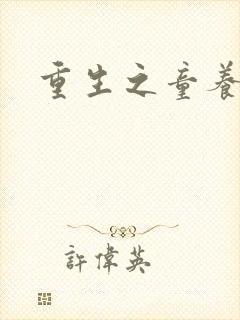 重生之童養
許偉英